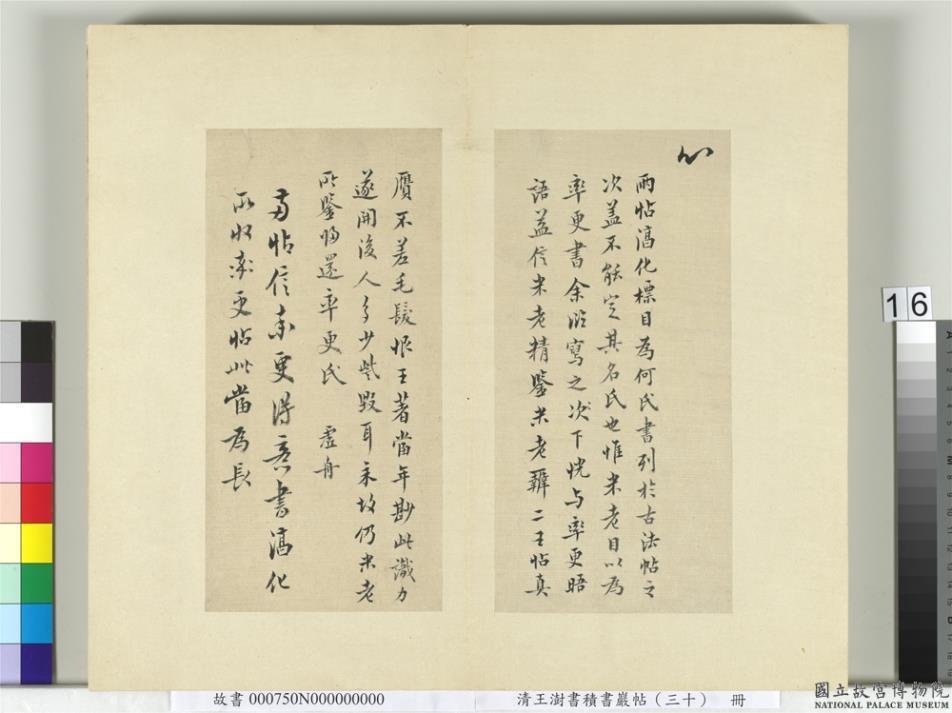 心
兩帖淳化標目為何氏書列於古法帖之
次蓋不能定其名氏也惟米老目以為
率更書余臨寫之次下恍与率更晤
語益信米老精鑒米老辨二王帖真
贋不差毛髮恨王著當年尟此識力
遂開後人多少訾毀耳余故仍米老
所鑒歸還率更氏 虛舟
兩帖信率更得意書淳化
所收率更帖此當為長
16
故書 000750N000000000
清王澍書積書巖帖（三十） 冊
國立故宮博物院
NATIONAL PALACE MUSEUM